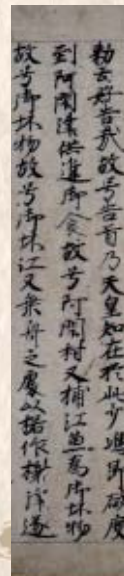 勅云好告哉故号告首乃天皇知在於此少嶋即欲度
到阿閇津供進御食故号阿閇村又捕江魚為御坏物
故号御坏物故号御坏江又乗舟之處以楉作榭津遂